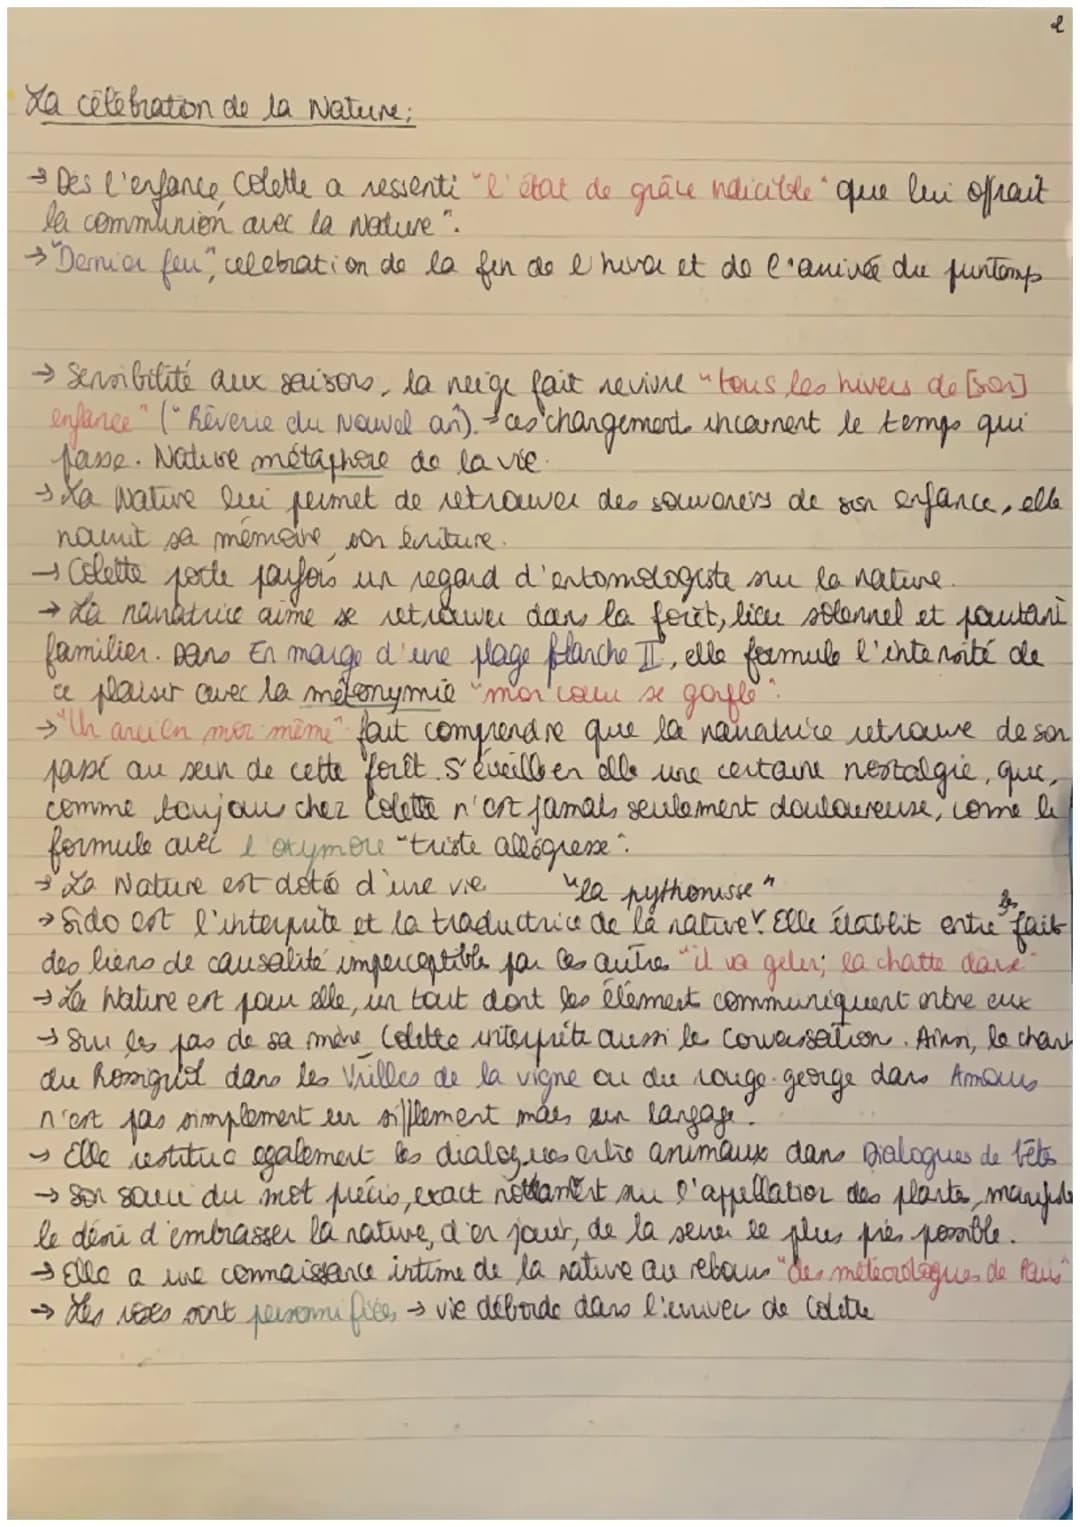 2
La célébration de la Nature;
→ Dès l'enfance, Colette a ressenti "l'état de grâce indicible" que lui offrait
la communion avec la Nature".
→ "Dernier feu", célébration de la fin de l'hiver et de l'arrivée du printemps
→ Sensibilité aux saisons, la neige fait revivre "tous les hivers de [son]
enfance" ("Rêverie du Nouvel an"). → ces changements incarnent le temps qui
passe. Nature métaphore de la vie.
→ La Nature lui permet de retrouver des souvenirs de son enfance, elle
nourrit sa mémoire, son écriture.
→ Colette porte parfois un regard d'entomologiste sur la nature.
→ La narratrice aime se retrouver dans la forêt, lieu solennel et pourtant
familier. Dans En marge d'une plage blanche II, elle formule l'intensité de
ce plaisir avec la métonymie "mon coeur se gonfle".
→ "Un ancien moi-même" fait comprendre que la narratrice retrouve de son
passé au sein de cette forêt. S'éveille en elle une certaine nostalgie, qui,
comme toujours chez Colette n'est jamais seulement douloureuse, come le
formule avec l'oxymore "triste allégresse".
→ La Nature est doté d'une vie
"la pythonisse"
→ Sido est l'interprète et la traductrice de la nature. Elle établit entre les faits
des liens de causalité imperceptible par les autres "il va geler; la chatte danse"
→ La Nature est pour elle, un tout dont les élément communiquent entre eux
→ Sur les pas de sa mère, Colette interprète aussi les conversations. Ainsi, le chant
du Rossignol dans les Vrilles de la vigne ou du rouge-gorge dans Amours
n'est pas simplement un sifflement mais un langage.
→ Elle restitue également les dialogues entre animaux dans Dialogues de bêtes
→ Son souci du mot précis, exact notamment sur l'appellation des plantes, manifeste
le désir d'embrasser la nature, d'en jouir, de la serrer le plus près possible.
→ Elle a une connaissance intime de la nature au rebours "des météorologues de Paris"
→ Les roses sont personnifiées → vie déborde dans l'univers de Colette